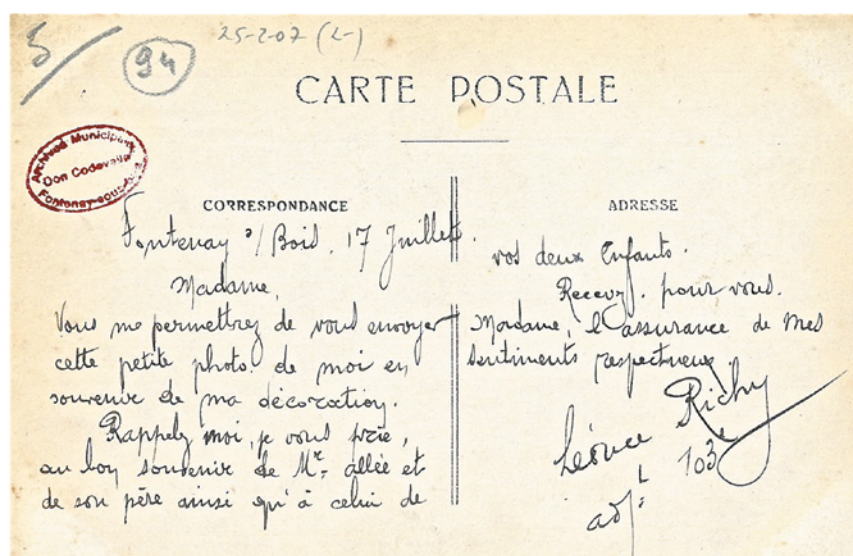 5/
94
25-2-07 (2-)
CARTE POSTALE
Archives Municipales
Don Codevelle
Fontenay-sous-Bois
CORRESPONDANCE
Fontenay s/ Bois, 17 Juillet.
Madame,
Vous me permettrez de vous envoyer
cette petite photo. de moi en
souvenir de ma décoration.
Rappelez moi, je vous prie,
au bon souvenir de Mr. allée et
de son père ainsi qu'à celui de
ADRESSE
vos deux Enfants.
Recevez. pour vous.
Madame, l'assurance de mes
sentiments respectueux.
Léonce Richy
adjt 103e